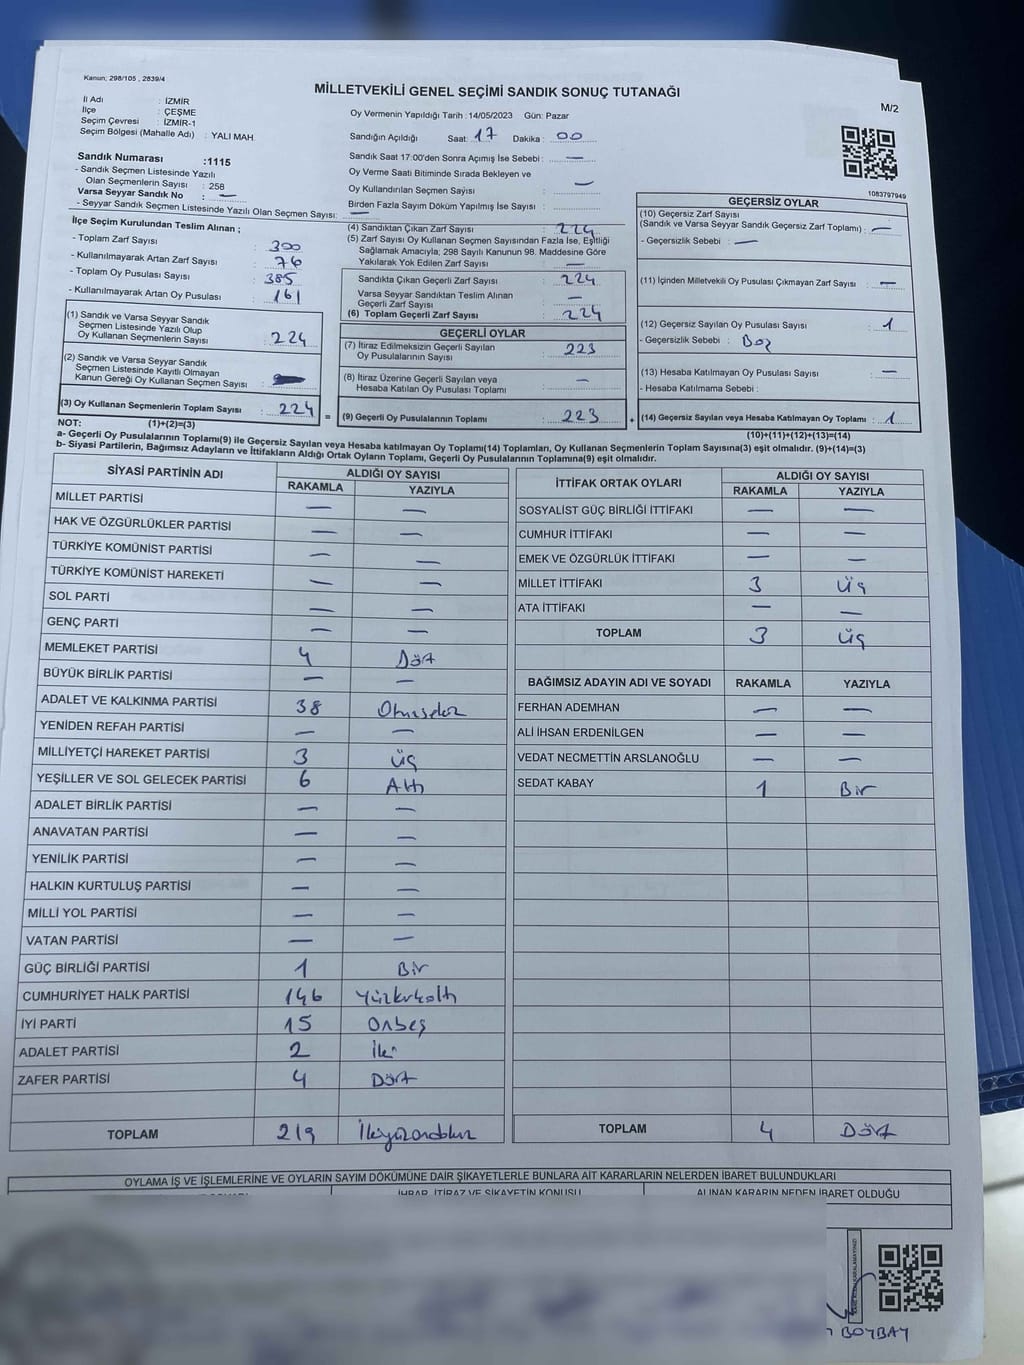 Kanun; 298/105 , 2839/4
MİLLETVEKİLİ GENEL SEÇİMİ SANDIK SONUÇ TUTANAĞI
M/2
İl Adı : İZMİR
İlçe : ÇEŞME
Seçim Çevresi : İZMİR-1
Seçim Bölgesi (Mahalle Adı) : YALI MAH.
Oy Vermenin Yapıldığı Tarih : 14/05/2023 Gün: Pazar
Sandığın Açıldığı Saat: 17 Dakika : 00
Sandık Saat 17:00'den Sonra Açımış İse Sebebi : —
Oy Verme Saati Bitiminde Sırada Bekleyen ve
Oy Kullandırılan Seçmen Sayısı : —
Birden Fazla Sayım Döküm Yapılmış İse Sayısı :
Sandık Numarası :1115
- Sandık Seçmen Listesinde Yazılı
Olan Seçmenlerin Sayısı : 258
Varsa Seyyar Sandık No : —
- Seyyar Sandık Seçmen Listesinde Yazılı Olan Seçmen Sayısı: —
1083797949
İlçe Seçim Kurulundan Teslim Alınan ;
- Toplam Zarf Sayısı : 300
- Kullanılmayarak Artan Zarf Sayısı : 76
- Toplam Oy Pusulası Sayısı : 385
- Kullanılmayarak Artan Oy Pusulası : 161
(1) Sandık ve Varsa Seyyar Sandık
Seçmen Listesinde Yazılı Olup
Oy Kullanan Seçmenlerin Sayısı : 224
(2) Sandık ve Varsa Seyyar Sandık
Seçmen Listesinde Kayıtlı Olmayan
Kanun Gereği Oy Kullanan Seçmen Sayısı :
(3) Oy Kullanan Seçmenlerin Toplam Sayısı : 224
(4) Sandıktan Çıkan Zarf Sayısı : 224
(5) Zarf Sayısı Oy Kullanan Seçmen Sayısından Fazla İse, Eşitliği
Sağlamak Amacıyla, 298 Sayılı Kanunun 98. Maddesine Göre
Yakılarak Yok Edilen Zarf Sayısı : —
Sandıkta Çıkan Geçerli Zarf Sayısı : 224
Varsa Seyyar Sandıktan Teslim Alınan
Geçerli Zarf Sayısı : —
(6) Toplam Geçerli Zarf Sayısı : 224
GEÇERLİ OYLAR
(7) İtiraz Edilmeksizin Geçerli Sayılan
Oy Pusulalarının Sayısı : 223
(8) İtiraz Üzerine Geçerli Sayılan veya
Hesaba Katılan Oy Pusulası Toplamı : —
= (9) Geçerli Oy Pusulalarının Toplamı : 223 +
GEÇERSİZ OYLAR
(10) Geçersiz Zarf Sayısı
(Sandık ve Varsa Seyyar Sandık Geçersiz Zarf Toplamı) : —
- Geçersizlik Sebebi : —
(11) İçinden Milletvekili Oy Pusulası Çıkmayan Zarf Sayısı : —
(12) Geçersiz Sayılan Oy Pusulası Sayısı : 1
- Geçersizlik Sebebi : Boş
(13) Hesaba Katılmayan Oy Pusulası Sayısı : —
- Hesaba Katılmama Sebebi :
(14) Geçersiz Sayılan veya Hesaba Katılmayan Oy Toplamı : 1
NOT: (1)+(2)=(3)
(10)+(11)+(12)+(13)=(14)
a- Geçerli Oy Pusulalarının Toplamı(9) ile Geçersiz Sayılan veya Hesaba katılmayan Oy Toplamı(14) Toplamları, Oy Kullanan Seçmenlerin Toplam Sayısına(3) eşit olmalıdır. (9)+(14)=(3)
b- Siyasi Partilerin, Bağımsız Adayların ve İttifakların Aldığı Ortak Oyların Toplamı, Geçerli Oy Pusulalarının Toplamına(9) eşit olmalıdır.
SİYASİ PARTİNİN ADI ALDIĞI OY SAYISI
RAKAMLA YAZIYLA
MİLLET PARTİSİ — —
HAK VE ÖZGÜRLÜKLER PARTİSİ — —
TÜRKİYE KOMÜNİST PARTİSİ — —
TÜRKİYE KOMÜNİST HAREKETİ — —
SOL PARTİ — —
GENÇ PARTİ — —
MEMLEKET PARTİSİ 4 Dört
BÜYÜK BİRLİK PARTİSİ — —
ADALET VE KALKINMA PARTİSİ 38 Otuzsekiz
YENİDEN REFAH PARTİSİ — —
MİLLİYETÇİ HAREKET PARTİSİ 3 üç
YEŞİLLER VE SOL GELECEK PARTİSİ 6 Altı
ADALET BİRLİK PARTİSİ — —
ANAVATAN PARTİSİ — —
YENİLİK PARTİSİ — —
HALKIN KURTULUŞ PARTİSİ — —
MİLLİ YOL PARTİSİ — —
VATAN PARTİSİ — —
GÜÇ BİRLİĞİ PARTİSİ 1 Bir
CUMHURİYET HALK PARTİSİ 146 Yüzkırkaltı
İYİ PARTİ 15 Onbeş
ADALET PARTİSİ 2 İki
ZAFER PARTİSİ 4 Dört
TOPLAM 219 İkiyüzondokuz
İTTİFAK ORTAK OYLARI ALDIĞI OY SAYISI
RAKAMLA YAZIYLA
SOSYALİST GÜÇ BİRLİĞİ İTTİFAKI — —
CUMHUR İTTİFAKI — —
EMEK VE ÖZGÜRLÜK İTTİFAKI — —
MİLLET İTTİFAKI 3 üç
ATA İTTİFAKI — —
TOPLAM 3 üç
BAĞIMSIZ ADAYIN ADI VE SOYADI RAKAMLA YAZIYLA
FERHAN ADEMHAN — —
ALİ İHSAN ERDENİLGEN — —
VEDAT NECMETTİN ARSLANOĞLU — —
SEDAT KABAY 1 Bir
TOPLAM 4 Dört
OYLAMA İŞ VE İŞLEMLERİNE VE OYLARIN SAYIM DÖKÜMÜNE DAİR ŞİKAYETLERLE BUNLARA AİT KARARLARIN NELERDEN İBARET BULUNDUKLARI
İHBAR, İTİRAZ VE ŞİKAYETİN KONUSU ALINAN KARARIN NEDEN İBARET OLDUĞU
BOYBAY